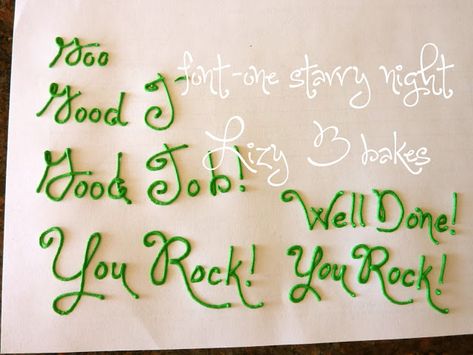 Goo
Good J
Good Job!
You Rock!
font-one starry night
Lizy B bakes
Well Done!
You Rock!